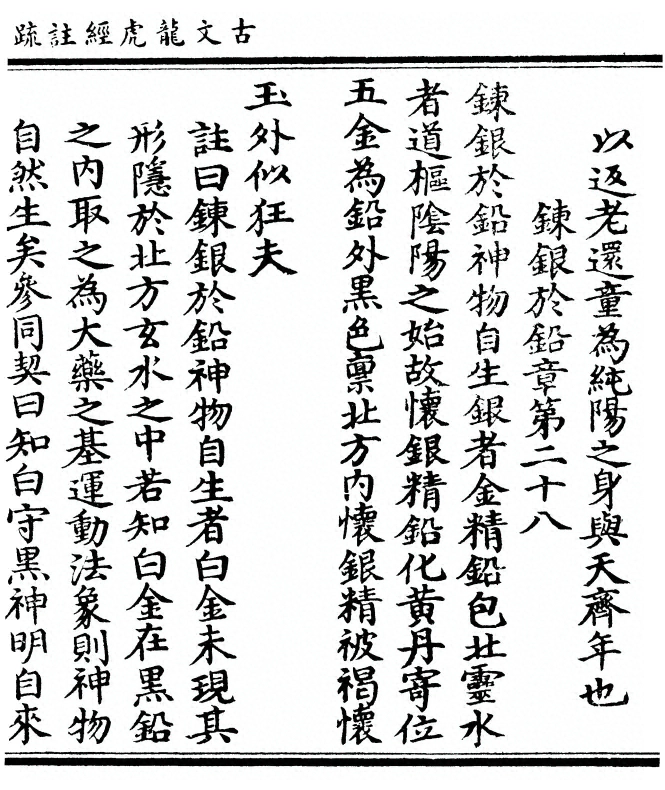 古文龍虎經註疏
以返老還童為純陽之身與天齊年也
鍊銀於鉛章第二十八
鍊銀於鉛神物自生銀者金精鉛包北靈水
者道樞陰陽之始故懷銀精鉛化黃丹寄位
五金為鉛外黑色禀北方内懷銀精被褐懷
玉外似狂夫
註曰鍊銀於鉛神物自生者白金未現其
形隱於北方玄水之中若知白金在黑鉛
之内取之為大藥之基運動法象則神物
自然生矣參同契曰知白守黑神明自來